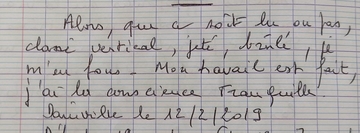 Alors, que ce soit lu ou pas,
classé vertical, jeté, brûlé, je
m'en fous - Mon travail est fait,
j'ai la conscience Tranquille.
le 12/2/2019